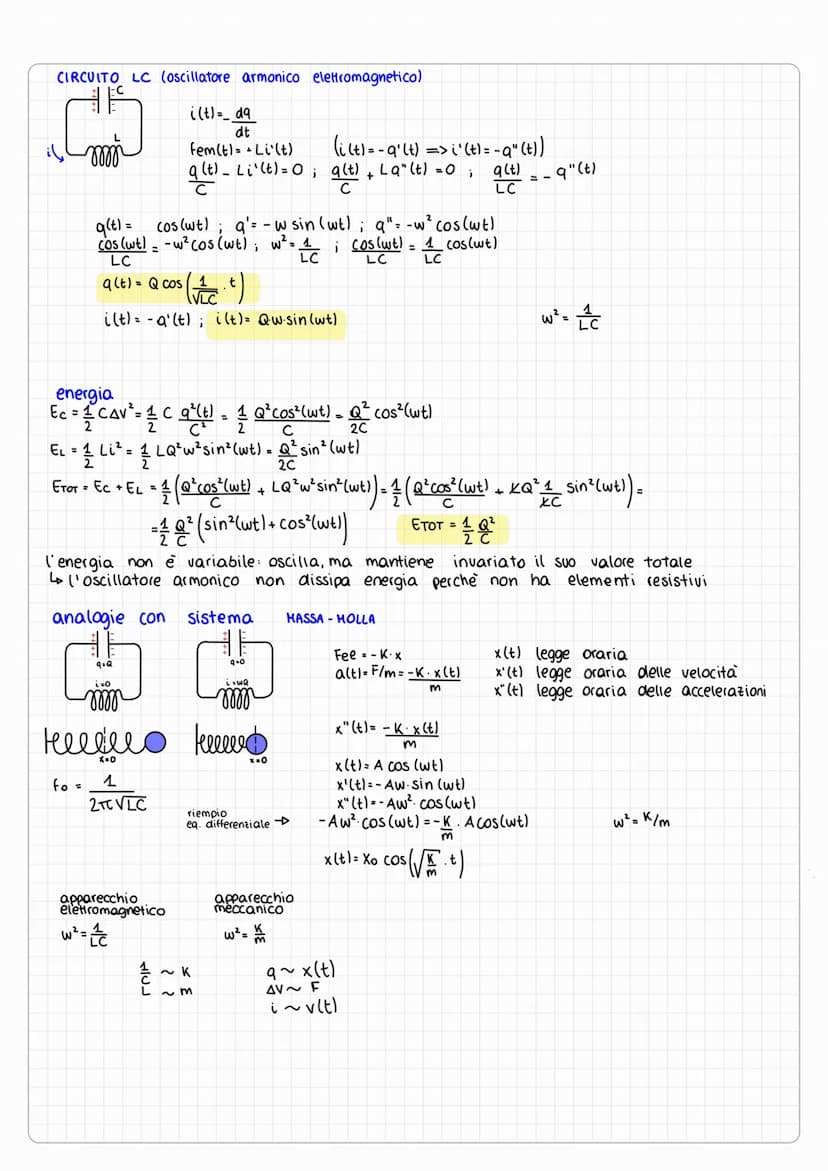 CIRCUITO LC (oscillatore armonico elettromagnetico)
C
L
i
i(t)=-dq/dt
fem(t)= - Li'(t) (i(t)=-q'(t) => i'(t)=-q"(t))
q(t)/C - Li'(t)=0 ; q(t)/C + Lq"(t)=0 ; q(t)/LC = - q"(t)
q(t)= cos(wt) ; q'= -w sin(wt) ; q"= -w² cos(wt)
cos(wt)/LC = -w² cos(wt) ; w²=1/LC ; cos(wt)/LC = 1/LC cos(wt)
q(t)= Q cos(1/√LC · t)
i(t)= -q'(t) ; i(t)= Q·w·sin(wt) w²= 1/LC
energia
Ec = 1/2 CΔV² = 1/2 C q²(t)/C² = 1/2 Q²cos²(wt)/C = Q²/2C cos²(wt)
EL = 1/2 Li² = 1/2 LQ²w²sin²(wt) = Q²/2C sin²(wt)
ETOT = Ec + EL = 1/2 (Q²cos²(wt)/C + LQ²w²sin²(wt)) = 1/2 (Q²cos²(wt)/C + LQ² 1/LC sin²(wt)) =
=1/2 Q²/C (sin²(wt)+cos²(wt)) ETOT = 1/2 Q²/C
l'energia non è variabile: oscilla, ma mantiene invariato il suo valore totale
↳ l'oscillatore armonico non dissipa energia perchè non ha elementi resistivi
analogie con sistema MASSA-MOLLA
q=Q
i=0
q=0
i=wQ
x=0
x=0
Fee = -K·x x(t) legge oraria
a(t)= F/m= -K·x(t)/m x'(t) legge oraria delle velocità
x"(t) legge oraria delle accelerazioni
x"(t)= -K·x(t)/m
x(t)= A cos(wt)
fo = 1/2π√LC x'(t)= -Aw·sin(wt)
x"(t)= -Aw²·cos(wt)
riempio
eq. differenziale → -Aw²·cos(wt)= -K/m · Acos(wt) w²= K/m
x(t)= Xo cos(√K/m · t)
apparecchio elettromagnetico apparecchio meccanico
w²= 1/LC w²= K/m
1/C ~ K q ~ x(t)
L ~ m ΔV ~ F
i ~ v(t)